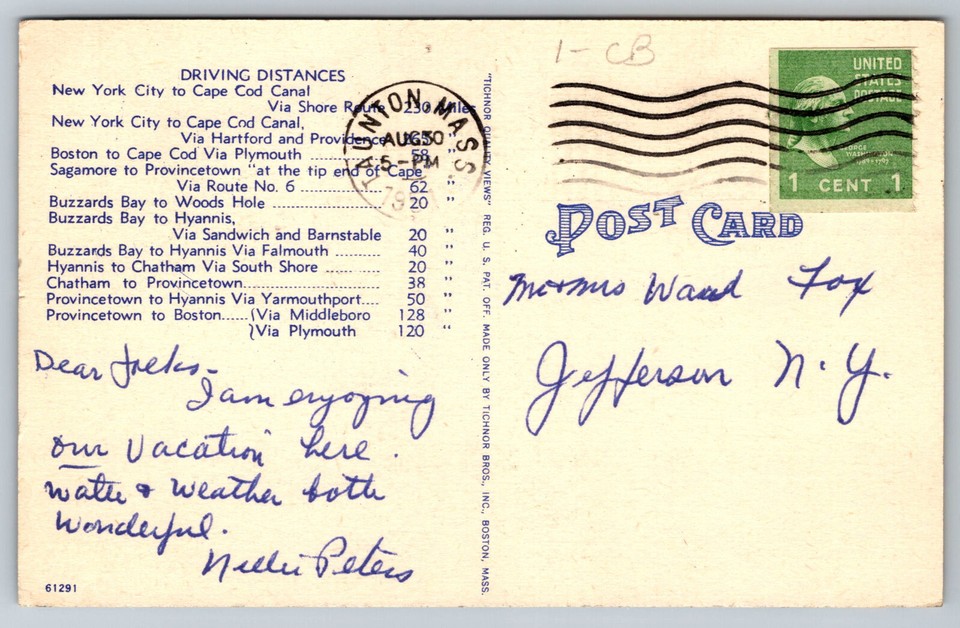 DRIVING DISTANCES
New York City to Cape Cod Canal
Via Shore Route 230 Miles
New York City to Cape Cod Canal,
Via Hartford and Providence "
Boston to Cape Cod Via Plymouth .......... 58 "
Sagamore to Provincetown "at the tip end of Cape"
Via Route No. 6 .......... 62 "
Buzzards Bay to Woods Hole .......... 20 "
Buzzards Bay to Hyannis,
Via Sandwich and Barnstable 20 "
Buzzards Bay to Hyannis Via Falmouth .......... 40 "
Hyannis to Chatham Via South Shore .......... 20 "
Chatham to Provincetown.......... 38 "
Provincetown to Hyannis Via Yarmouthport.... 50 "
Provincetown to Boston......(Via Middleboro 128 "
)Via Plymouth 120 "
Dear Folks-
I am enjoying
our vacation here.
Water & Weather both
Wonderful.
Nellie Peters
61291
"TICHNOR QUALITY VIEWS" REG. U. S. PAT. OFF. MADE ONLY BY TICHNOR BROS., INC., BOSTON, MASS.
1-CB
TAUNTON MASS
AUG 30
5-PM
UNITED
STATES
POSTAGE
GEORGE
WASHINGTON
1 CENT 1
POST CARD
Mr & Mrs Ward Fox
Jefferson N.Y.